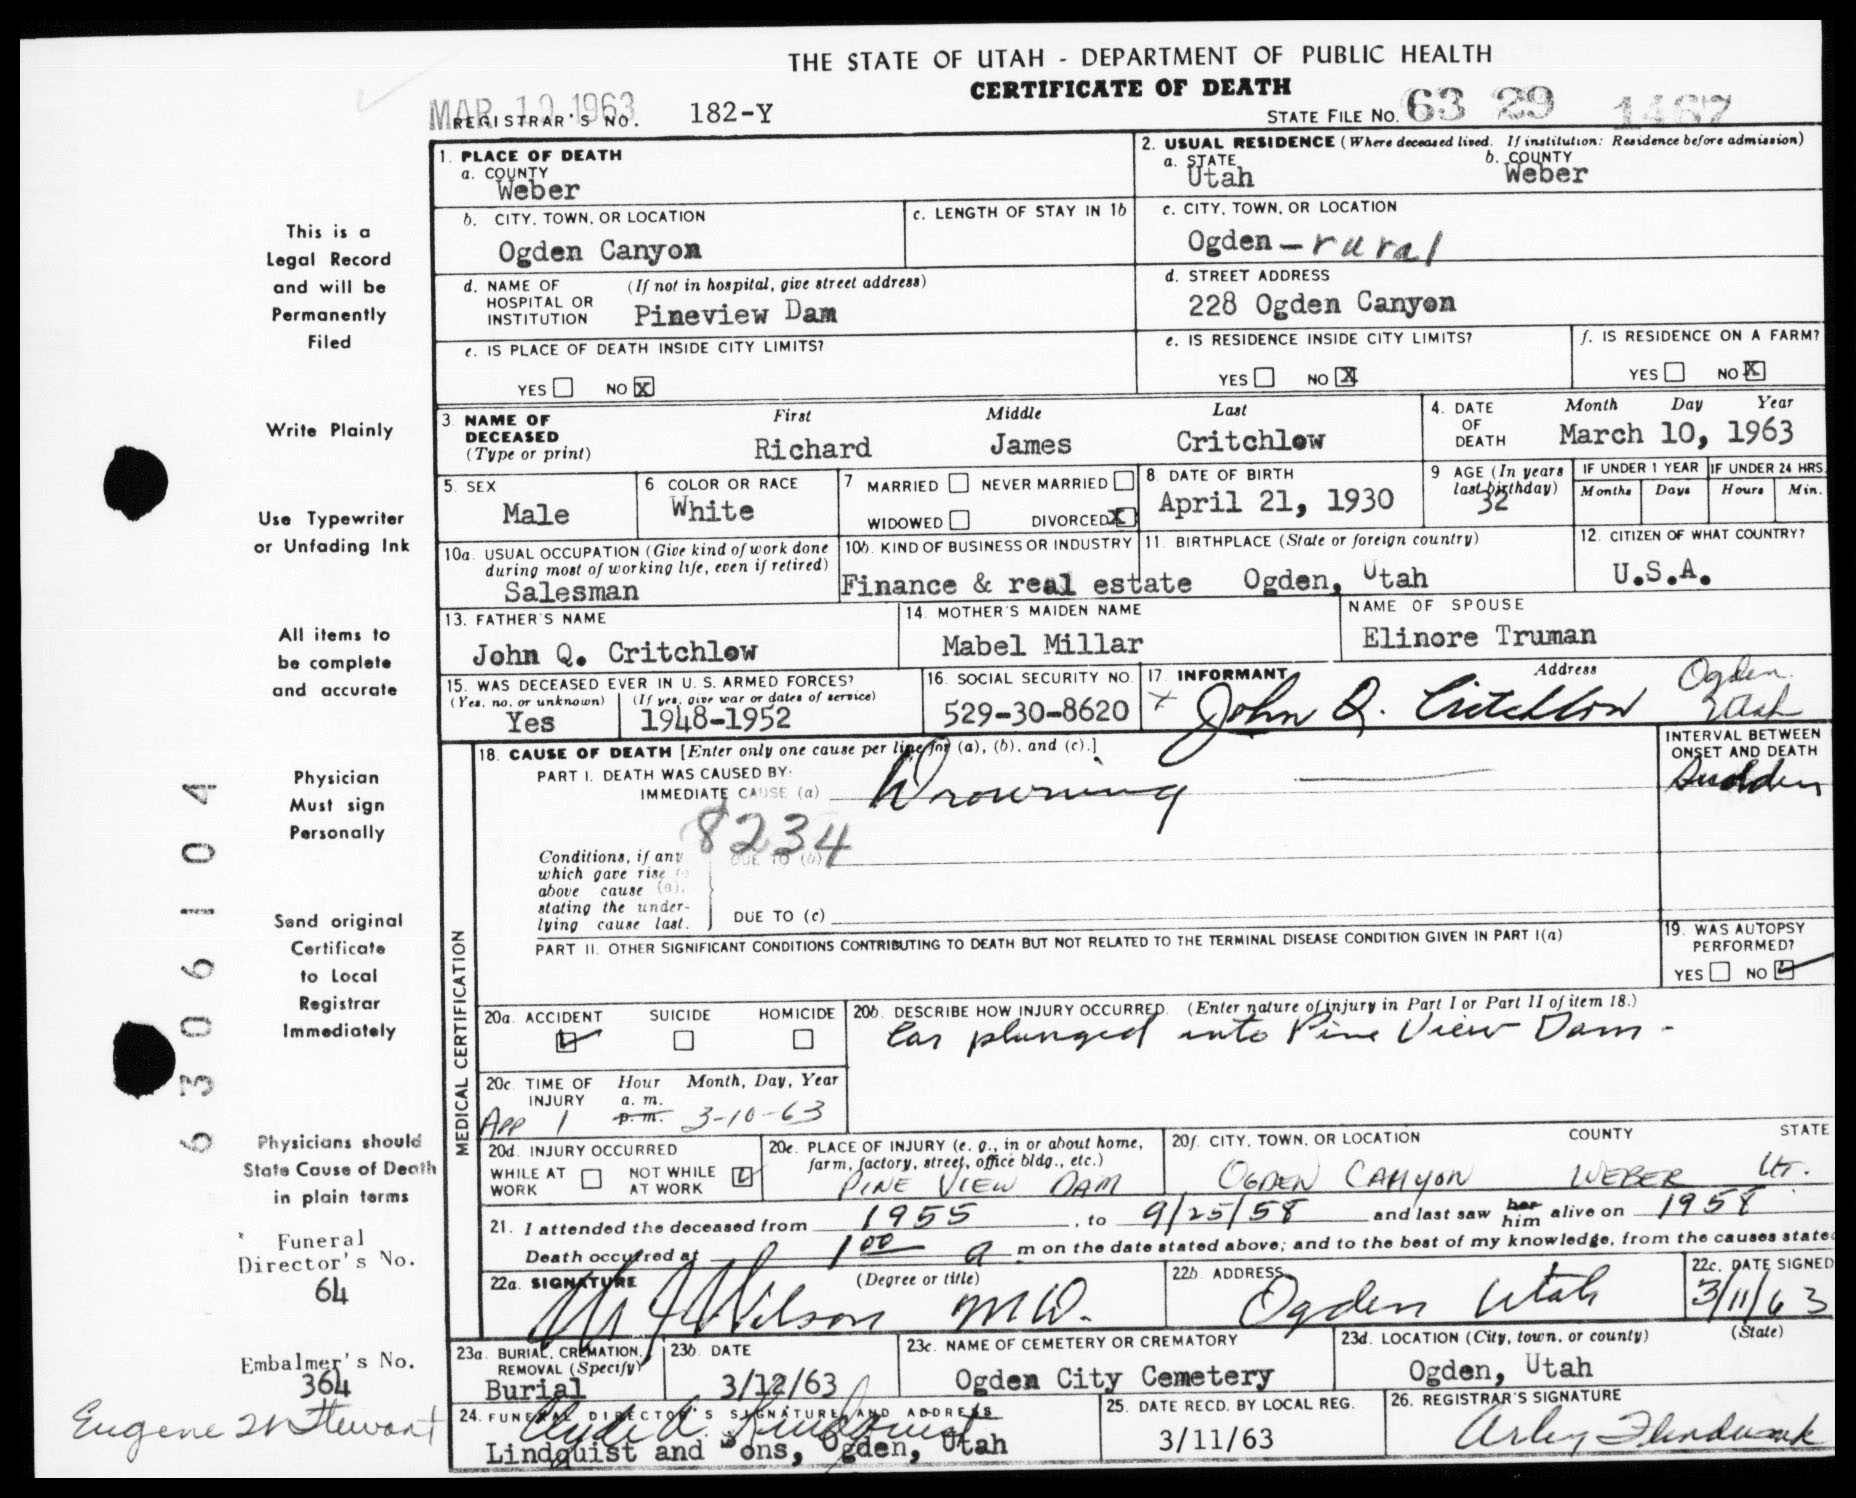 THE STATE OF UTAH - DEPARTMENT OF PUBLIC HEALTH
CERTIFICATE OF DEATH
MAR 19 1963
REGISTRAR'S NO. 182-Y
STATE FILE NO. 63 29 1467
1. PLACE OF DEATH
a. COUNTY
Weber
2. USUAL RESIDENCE (Where deceased lived. If institution: Residence before admission)
a. STATE b. COUNTY
Utah Weber
b. CITY, TOWN, OR LOCATION
Ogden Canyon
c. LENGTH OF STAY IN 1b
c. CITY, TOWN, OR LOCATION
Ogden - rural
d. NAME OF HOSPITAL OR INSTITUTION (If not in hospital, give street address)
Pineview Dam
d. STREET ADDRESS
228 Ogden Canyon
e. IS PLACE OF DEATH INSIDE CITY LIMITS?
YES NO X
e. IS RESIDENCE INSIDE CITY LIMITS?
YES NO X
f. IS RESIDENCE ON A FARM?
YES NO X
3 NAME OF DECEASED (Type or print)
First Middle Last
Richard James Critchlow
4. DATE OF DEATH
Month Day Year
March 10, 1963
5. SEX
Male
6 COLOR OR RACE
White
7 MARRIED NEVER MARRIED
WIDOWED DIVORCED X
8. DATE OF BIRTH
April 21, 1930
9 AGE (In years last birthday)
32
IF UNDER 1 YEAR IF UNDER 24 HRS.
Months Days Hours Min.
10a. USUAL OCCUPATION (Give kind of work done during most of working life, even if retired)
Salesman
10b. KIND OF BUSINESS OR INDUSTRY
Finance & real estate
11. BIRTHPLACE (State or foreign country)
Ogden, Utah
12. CITIZEN OF WHAT COUNTRY?
U.S.A.
13. FATHER'S NAME
John Q. Critchlow
14. MOTHER'S MAIDEN NAME
Mabel Millar
NAME OF SPOUSE
Elinore Truman
15. WAS DECEASED EVER IN U. S. ARMED FORCES?
(Yes, no, or unknown) (If yes, give war or dates of service)
Yes 1948-1952
16. SOCIAL SECURITY NO.
529-30-8620
17. INFORMANT Address
John Q. Critchlow Ogden Utah
18. CAUSE OF DEATH [Enter only one cause per line for (a), (b), and (c).]
PART I. DEATH WAS CAUSED BY:
IMMEDIATE CAUSE (a) Drowning
INTERVAL BETWEEN ONSET AND DEATH
Sudden
8234
Conditions, if any which gave rise to above cause (a), stating the underlying cause last.
DUE TO (b)
DUE TO (c)
PART II. OTHER SIGNIFICANT CONDITIONS CONTRIBUTING TO DEATH BUT NOT RELATED TO THE TERMINAL DISEASE CONDITION GIVEN IN PART I(a)
19. WAS AUTOPSY PERFORMED?
YES NO
MEDICAL CERTIFICATION
20a. ACCIDENT SUICIDE HOMICIDE
20b. DESCRIBE HOW INJURY OCCURRED. (Enter nature of injury in Part I or Part II of item 18.)
Car plunged into Pine View Dam -
20c. TIME OF INJURY Hour Month, Day, Year
a. m.
p. m.
APP 1 3-10-63
20d. INJURY OCCURRED
WHILE AT WORK NOT WHILE AT WORK
20e. PLACE OF INJURY (e. g., in or about home, farm, factory, street, office bldg., etc.)
PINE VIEW DAM
20f. CITY, TOWN, OR LOCATION COUNTY STATE
OGDEN CANYON WEBER UT.
21. I attended the deceased from 1955, to 9/25/58 and last saw her him alive on 1958
Death occurred at 1 00 a. m on the date stated above; and to the best of my knowledge, from the causes stated
22a. SIGNATURE (Degree or title)
Wilson M.D.
22b. ADDRESS
Ogden Utah
22c. DATE SIGNED
3/11/63
23a. BURIAL, CREMATION, REMOVAL (Specify)
Burial
23b. DATE
3/12/63
23c. NAME OF CEMETERY OR CREMATORY
Ogden City Cemetery
23d. LOCATION (City, town, or county) (State)
Ogden, Utah
24. FUNERAL DIRECTOR'S SIGNATURE AND ADDRESS
Lindquist and Sons, Ogden, Utah
25. DATE RECD. BY LOCAL REG.
3/11/63
26. REGISTRAR'S SIGNATURE
This is a
Legal Record
and will be
Permanently
Filed
Write Plainly
Use Typewriter
or Unfading Ink
All items to
be complete
and accurate
Physician
Must sign
Personally
Send original
Certificate
to Local
Registrar
Immediately
Physicians should
State Cause of Death
in plain terms
Funeral
Director's No.
64
Embalmer's No.
364
Eugene W Stewart
6306104